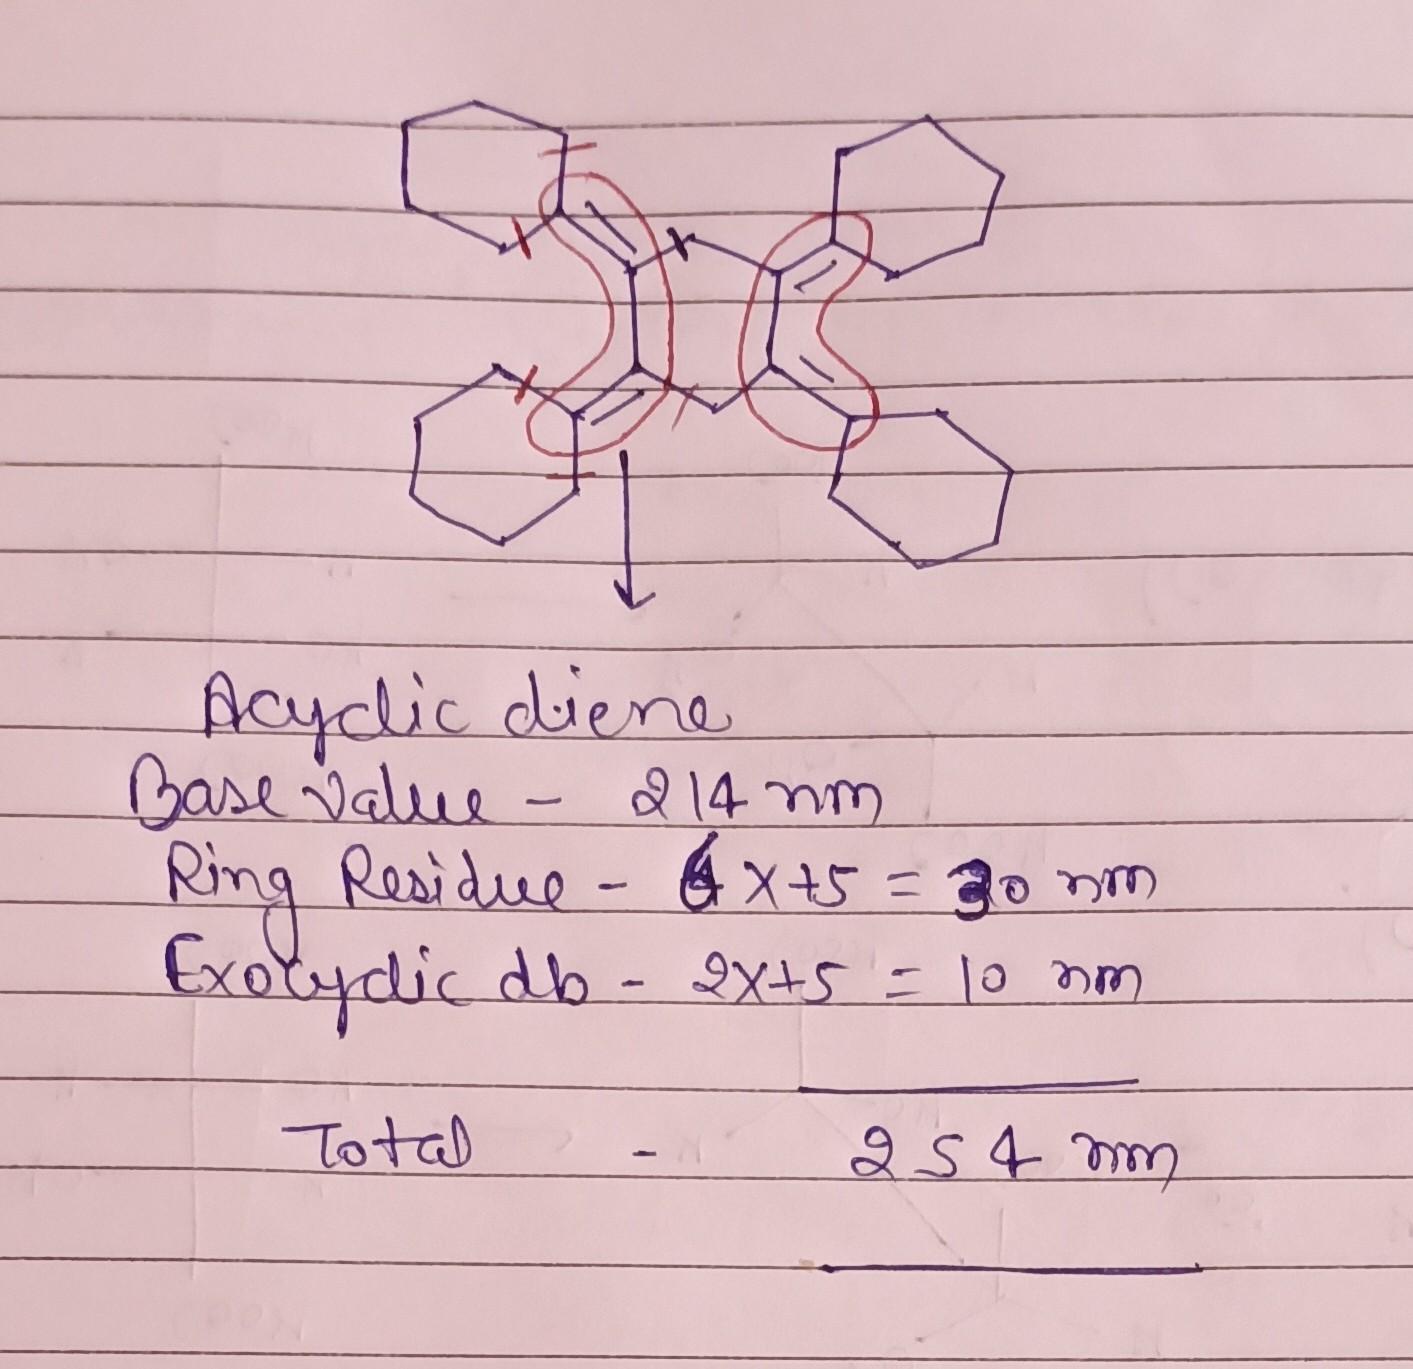 Acyclic diene
Base value - 214 nm
Ring Residue - 6 x+5 = 30 nm
Exocyclic db - 2x+5 = 10 nm
Total - 254 nm